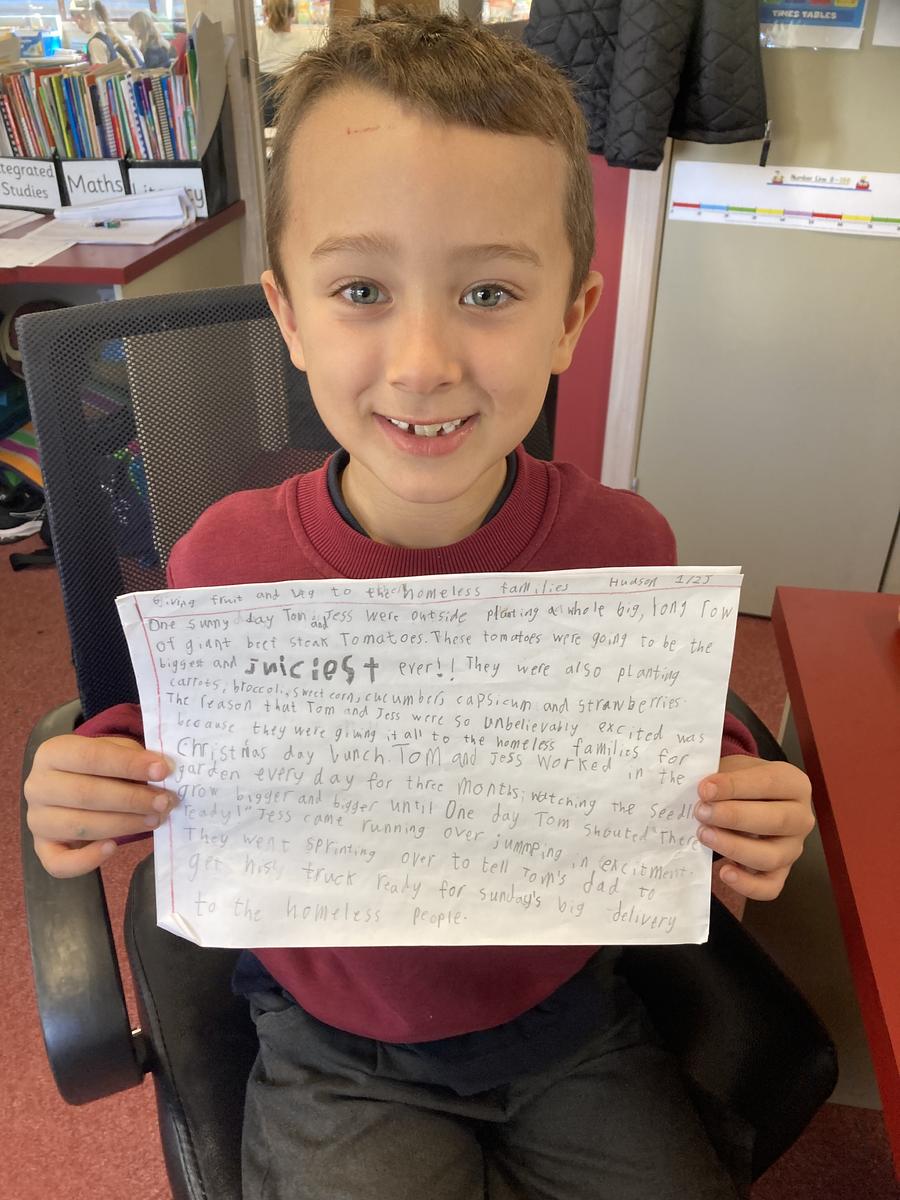 TIMES TABLES
Integrated Studies
Maths
Literacy
Number Line 0-100
Giving fruit and veg to the homeless families Hudson 1/2J
One sunny day Tom and Jess were outside planting a whole big, long row
of giant beef steak Tomatoes. These tomatoes were going to be the
biggest and juiciest ever!! They were also planting
carrots, broccoli, sweet corn, cucumbers, capsicum and strawberries.
The reason that Tom and Jess were so unbelievably excited was
because they were giving it all to the homeless families for
Christmas day lunch. Tom and Jess worked in the
garden every day for three months; watching the seedl
grow bigger and bigger until One day Tom shouted "There
ready!" Jess came running over jummping in excitment.
They went sprinting over to tell Tom's dad to
get his truck ready for sunday's big delivery
to the homeless people.